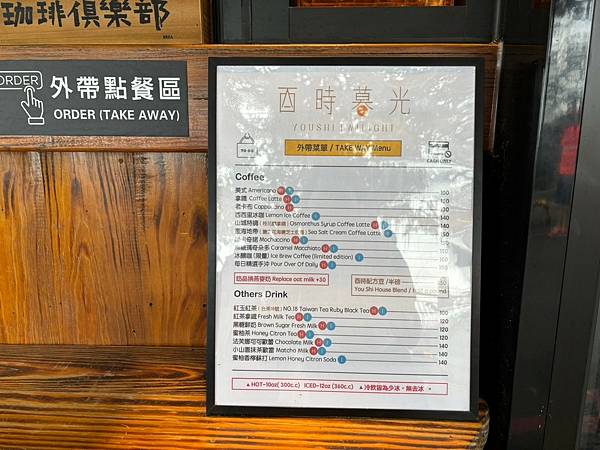 珈琲俱樂部
ORDER
外帶點餐區
ORDER (TAKE AWAY)
酉時暮光
YOUSHI TWILIGHT
TO GO
外帶菜單 / TAKE WAY Menu
CASH ONLY
Coffee
美式 Americano H I 100
拿鐵 Coffee Latte H I 120
老卡布 Cappuccino H
西西里冰咖 Lemon Ice Coffee I 140
Osmanthus Syrup Coffee Latte H I 140
Sea Salt Cream Coffee Latte I
Mochaccino H I
Caramel Macchiato H I
冰釀咖 (限量) Ice Brew Coffee (limited edition) I
每日精選手沖 Pour Over Of Daily H I
奶品換燕麥奶 Replace oat milk +30
酉時配方豆 /半磅
You Shi House Blend / half a pound
Others Drink
紅玉紅茶 (台茶18號) NO.18 Taiwan Tea Ruby Black Tea H I 100
紅茶拿鐵 Fresh Milk Tea H I 120
黑糖鮮奶 Brown Sugar Fresh Milk H I 120
蜜柚茶 Honey Citron Tea H I 120
法芙娜可可歐蕾 Chocolate Milk H I 140
小山園抹茶歐蕾 Matcha Milk H I 140
蜜柚香檸蘇打 Lemon Honey Citron Soda I 140
▲HOT-10oz( 300c.c) ICED-12oz (360c.c) ▲冷飲皆為少冰，無去冰 。